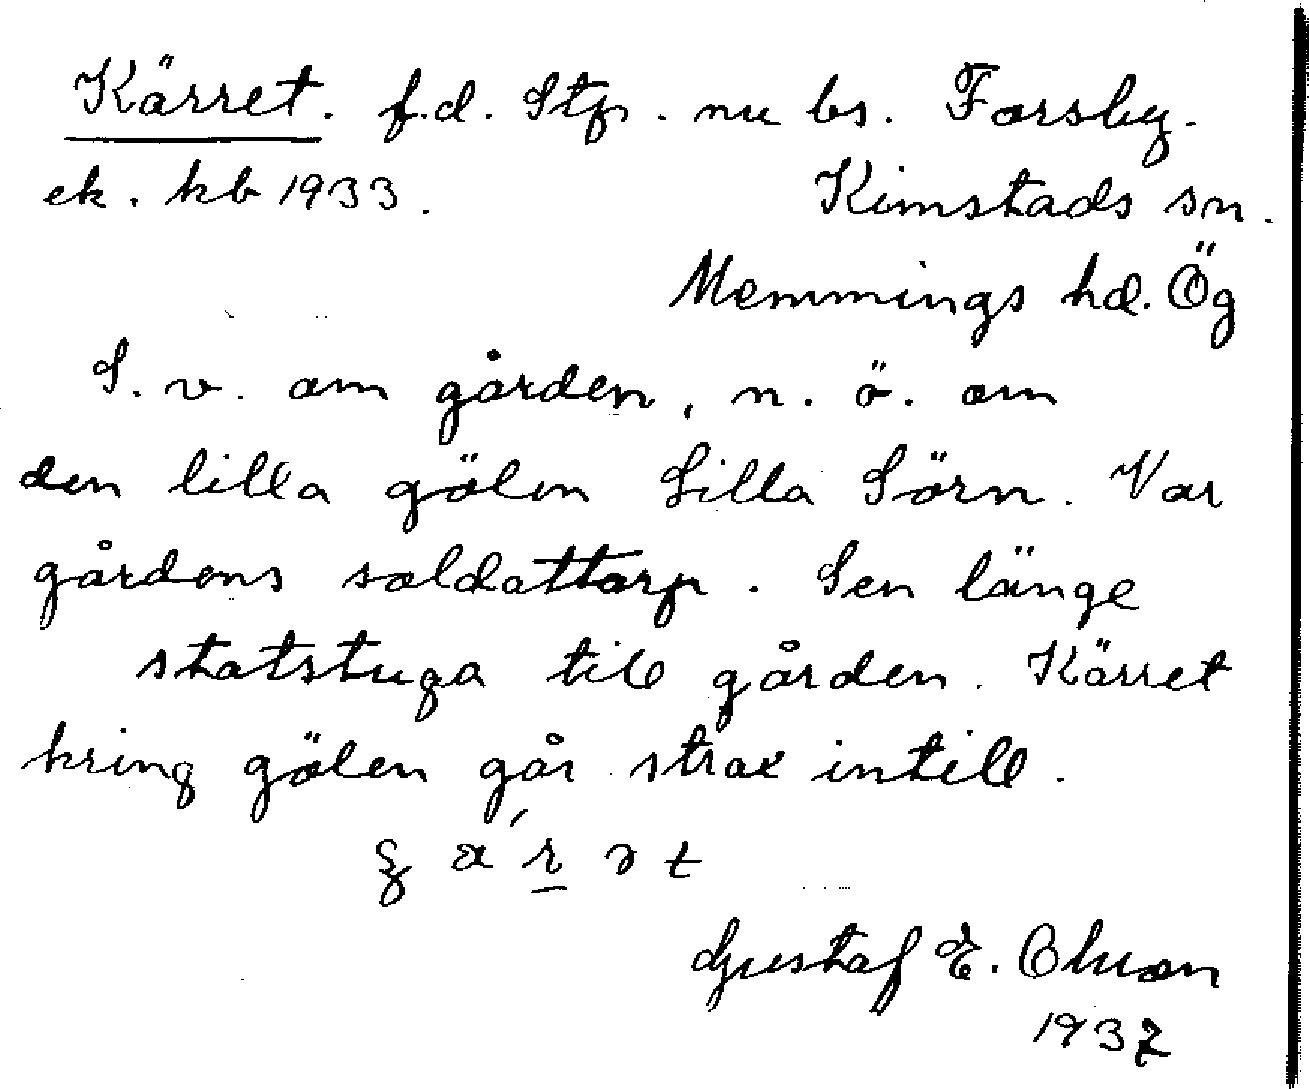 Kärret. f.d. Stp. nu bs. Forsby.
ek. kb 1933. Kimstads sn.
Memmings hd. Ög
S. v. om gården, n. ö. om
den lilla gölen Lilla Sörn. Var
gårdens soldattorp. Sen länge
statstuga till gården. Kärret
kring gölen går strax intill.
Gustaf E. Olsson
1937